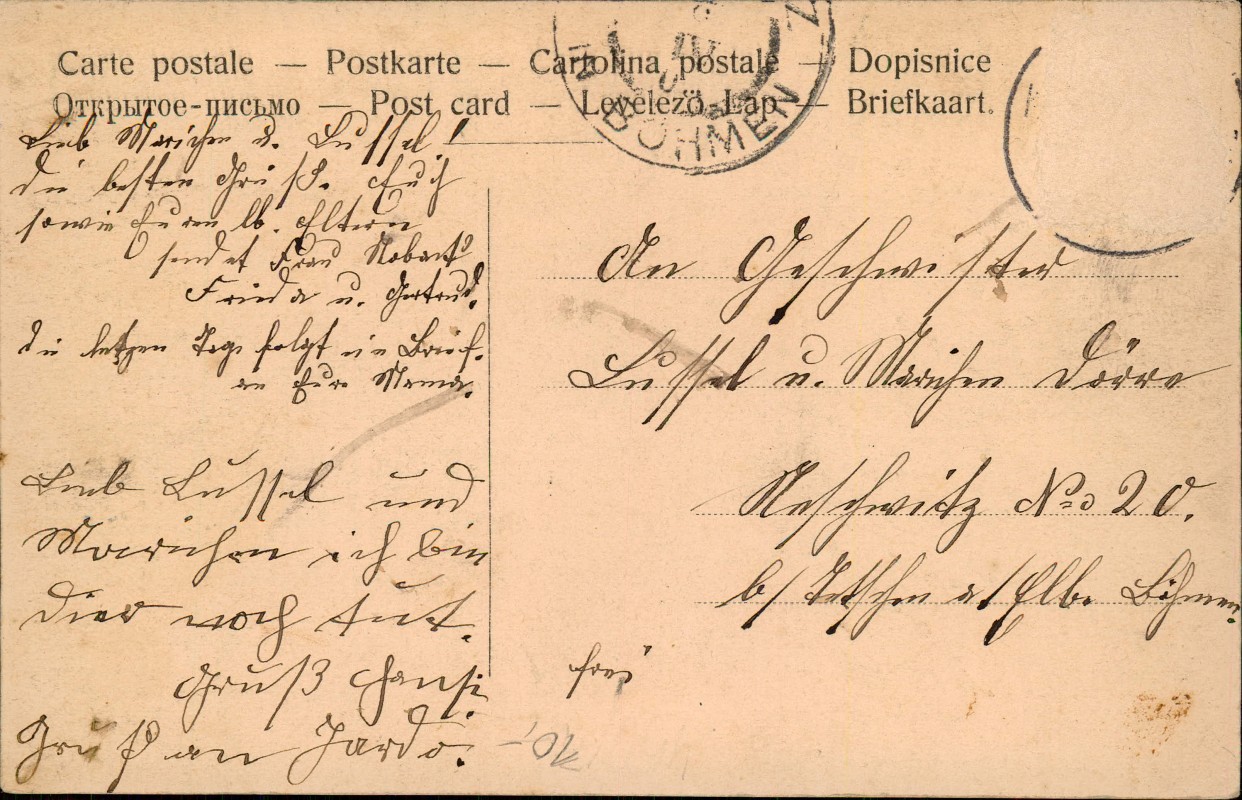 Carte postale — Postkarte — Cartolina postale — Dopisnice
Открытое-письмо — Post card — Levelező-Lap — Briefkaart.
BÖHMEN
Lieb Marichen u. Lussel!
die besten Grüße Euch
sowie Euren lb. Eltern
sendet Frau
Frieda u. Gertrud.
die letzten Tage folgt ein Brief
an Eure Mama.
Lieb Lussel und
Marichen ich bin
noch
Gruß Hansi.
Gruß an
An Geschwister
Lussel u. Marichen Dörre
Neschwitz No 20.
b/Tetschen a/Elbe Böhmen.
frei
10,-